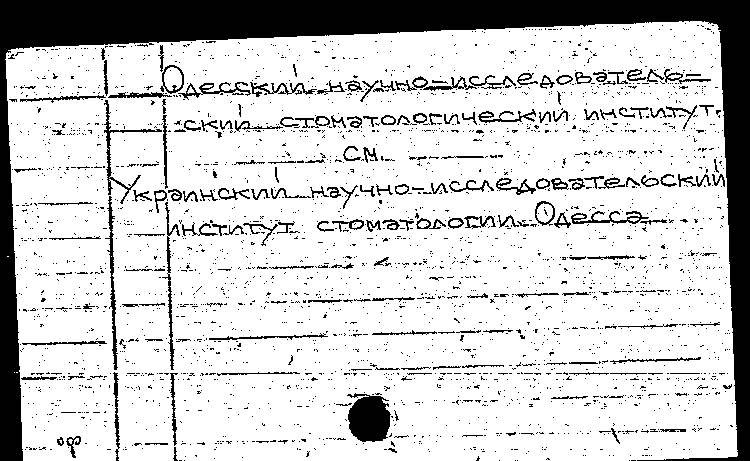 Одесский научно-исследователь-
ский стоматологический институт.
см.
Украинский научно-исследовательский
институт стоматологии. Одесса.